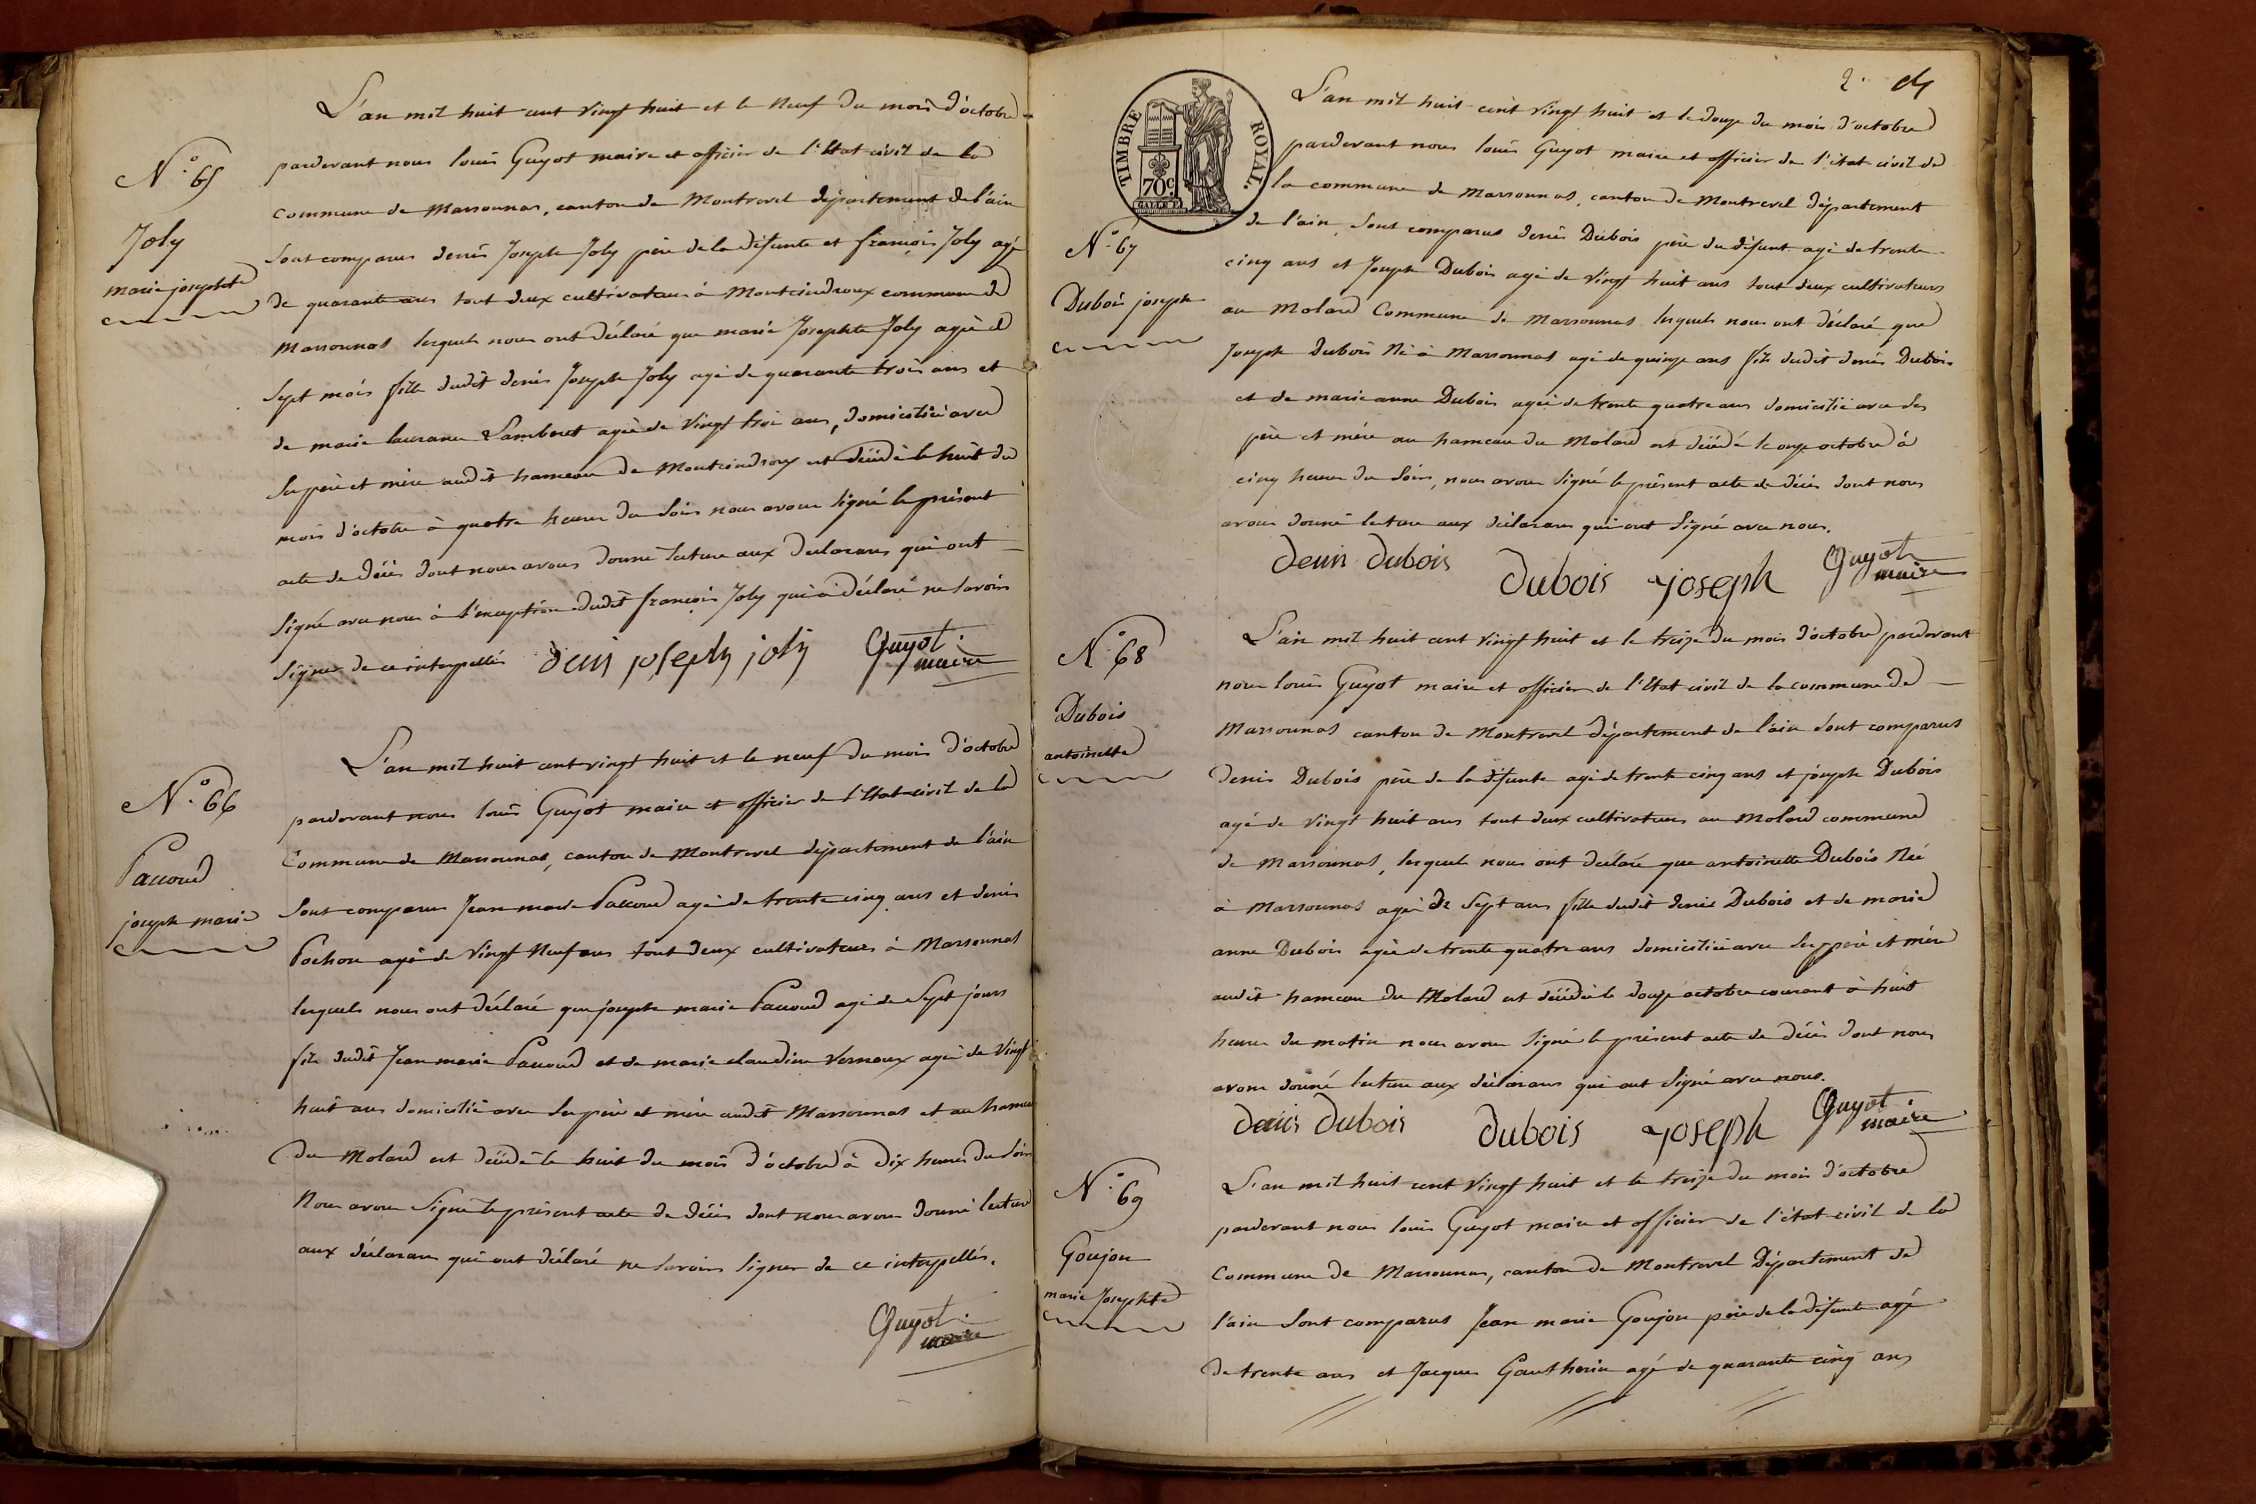 N.° 65
Joly
marie josephte
L'an mil huit cent vingt huit et le neuf du mois d'octobre
pardevant nous louis Guyot maire et officier de l'Etat civil de la
commune de Marsonnas, canton de Montrevel département de l'ain
sont comparus denis Joseph Joly père de la défunte et françois Joly agé
de quarante ans tout deux cultivateurs à Montcindroux commune de
Marsonnas lesquels nous ont déclaré que marie Josephte Joly agée de
sept mois fille dudit denis Joseph Joly agé de quarante trois ans et
de marie laurance Lamberet agée de vingt troi ans, domiciliée avec
ses père et mère audit hameau de Montcindroux est décédée le huit du
mois d'octobre à quatre heures du soir nous avons signé le présent
acte de décès dont nous avons donné lecture aux déclarans qui ont
signé avec nous à l'exception dudit françois Joly qui a déclaré ne savoir
signer de ce interpellés denis joseph joly Guyot maire
N.° 66
Paccoud
joseph marie
L'an mil huit cent vingt huit et le neuf du mois d'octobre
pardevant nous louis Guyot maire et officier de l'Etat civil de la
Commune de Marsonnas, canton de Montrevel département de l'ain
sont comparus Jean marie Paccoud agé de trente cinq ans et denis
Pochon agé de vingt neuf ans tout deux cultivateurs à Marsonnas
lesquels nous ont déclaré que joseph marie Paccoud agé de sept jours
fils dudit Jean marie Paccoud et de marie claudine Vernoux agée de vingt
huit ans domicilié avec ses père et mère audit Marsonnas et au hameau
du Molard est décédé le huit du mois d'octobre à dix heures du soir
Nous avons signé le présent acte de décès dont nous avons donné lecture
aux déclarans qui ont déclaré ne savoir signer de ce interpellés.
Guyot maire
2.
TIMBRE ROYAL.
70c
N.° 67
Dubois joseph
L'an mil huit cent vingt huit et le douze du mois d'octobre
pardevant nous louis Guyot maire et officier de l'état civil de
la commune de Marsonnas, canton de Montrevel département
de l'ain, sont comparus denis Dubois père du défunt agé de trente
cinq ans et Joseph Dubois agé de vingt huit ans tout deux cultivateurs
au Molard Commune de Marsonnas lesquels nous ont déclaré que
Joseph Dubois Né à Marsonnas agé de quinze ans fils dudit denis Dubois
et de marie anne Dubois agée de trente quatre ans domicilié avec ses
père et mère au hameau du Molard est décédé le onze octobre à
cinq heures du soir, nous avons signé le présent acte de décès dont nous
avons donné lecture aux déclarans qui ont signé avec nous.
denis dubois dubois joseph Guyot maire
N.° 68
Dubois
antoinette
L'an mil huit cent vingt huit et le treize du mois d'octobre pardevant
nous louis Guyot maire et officier de l'Etat civil de la commune de
Marsonnas canton de Montrevel département de l'ain sont comparus
denis Dubois père de la défunte agé de trente cinq ans et joseph Dubois
agé de vingt huit ans tout deux cultivateurs au Molard commune
de Marsonnas, lesquels nous ont déclaré que antoinette Dubois Née
à Marsonnas agée de sept ans fille dudit denis Dubois et de marie
anne Dubois agée de trente quatre ans domiciliée avec ses père et mère
audit hameau du Molard est décédée le douze octobre courant à huit
heures du matin nous avons signé le présent acte de décès dont nous
avons donné lecture aux déclarans qui ont signé avec nous.
denis dubois dubois joseph Guyot maire
N.° 69
Goujon
marie Josephte
L'an mil huit cent vingt huit et le treize du mois d'octobre
pardevant nous louis Guyot maire et officier de l'état civil de la
Commune de Marsonnas, canton de Montrevel Département de
l'ain sont comparus Jean marie Goujon père de la défunte agé
de trente ans et Jacques Gautherin agé de quarante cinq ans